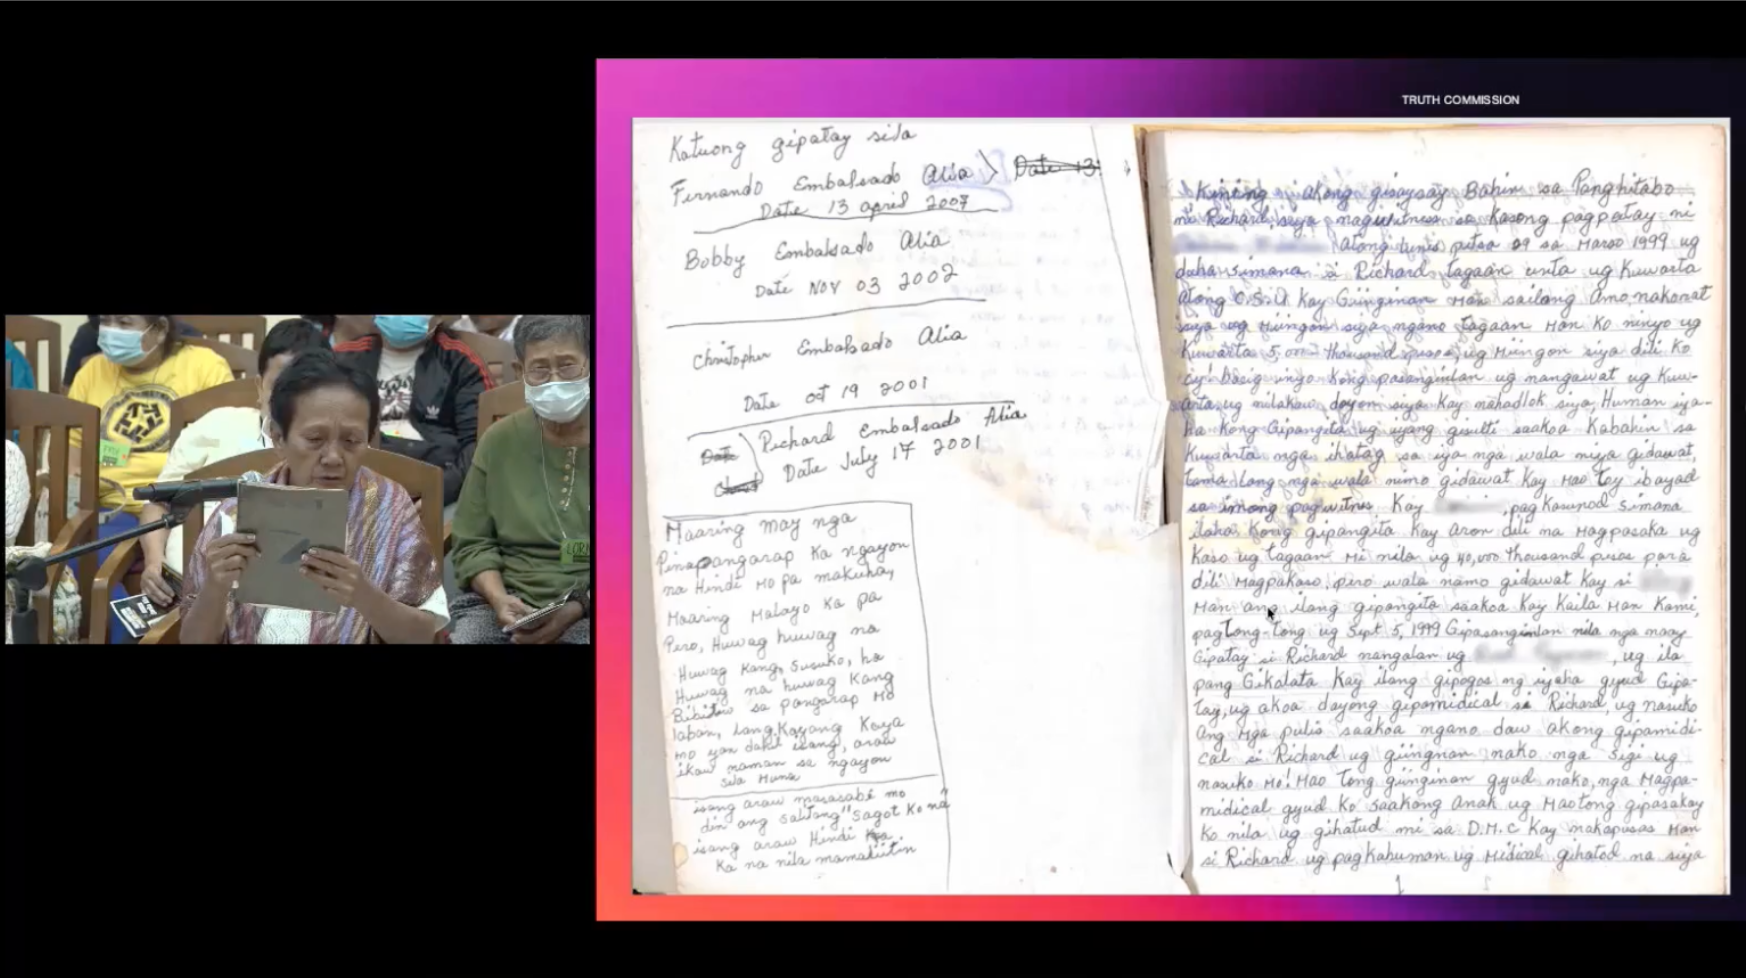 TRUTH COMMISSION
Katuong gipatay sila
Fernando Embalsado Alia Date 13
Date 13 april 2007
Bobby Embalsado Alia
Date Nov 03 2002
Christopher Embalsado Alia
Date oct 19 2001
Date Richard Embalsado Alia
Date July 17 2001
Maaring may nga
Pinapangarap ka ngayon
na Hindi mo pa makuha,
Maaring Malayo ka pa
Pero, Huwag huwag na
Huwag kang, susuko, ha
Huwag na huwag kang
sa pangarap mo
laban, lang. Kayang kaya
mo yan dahil isang, araw
ikaw naman sa ngayon
sila muna
isang araw masasabi mo
din ang salitang "Sagot ko na"
isang araw Hindi ka
ka na nila mamaliitin
Kining akong gisaysay Bahin sa Panghitabo
ni Richard, siya nag witness sa kasong pagpatay ni
atong tunis pitsa 09 sa Marso 1999 ug
duha simana si Richard tagaan unta ug kuwarta
atong C.S.U kay Giinginan man sailang Amo, nakurat
siya ug Miingon siya ngano tagaan man ko ninyo ug
kuwarta 5,000 thousand pesos, ug Miingon siya dili ko
oy! basig inyo kong pasanginlan ug mangawat ug kuw-
arta, ug milakaw dayon siya kay mahadlok siya, Human iya-
ha kong Gipangita ug iyang gisulti saakoa kabahin sa
kuwarta nga ihatag sa iya nga wala niya gidawat,
tama lang nga wala nimo gidawat kay mao toy ibayad
sa imong pagwitnes kay , pag kasunod simana
ilaha kong gipangita kay aron dili na magpasaka ug
kaso ug tagaan mi nila ug 40,000 thousand pesos para
dili magpakaso, pero wala namo gidawat kay si
man ang ilang gipangita saakoa kay kaila man kami,
pagtong-tong ug Sept 5, 1999 Gipasanginlan nila nga naay
Gipatay si Richard nangalan ug , ug ila
pang Gikalata kay ilang gipogos ng iyaha gyud Gipa-
tay, ug akoa dayong gipamidical si Richard, ug nasuko
ang mga pulis saakoa ngano daw akong gipamidi-
cal si Richard ug giingnan nako nga sigi ug
nasuko mo! Mao tong giinginan gyud nako, nga magpa-
midical gyud ko saakong anak ug Maotong gipasakay
ko nila ug gihatud mi sa D.M.C kay nakaposas man
si Richard ug pagkahuman ug Midical gihatod na siya